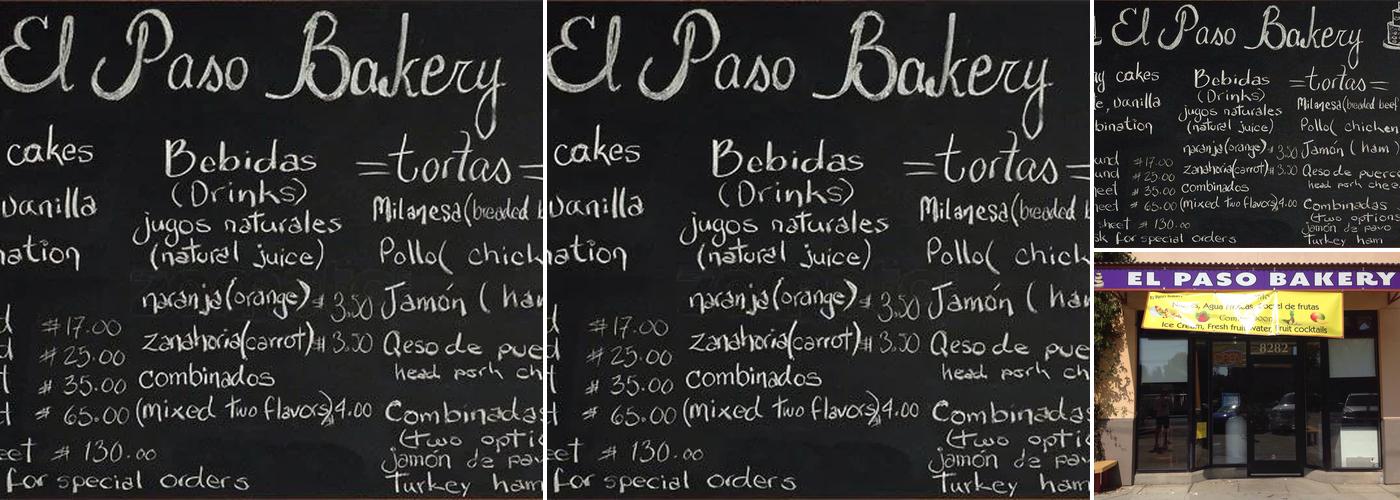 El Paso Bakery
cakes
vanilla
nation
Bebidas
(Drinks)
jugos naturales
(natural juice)
naranja(orange) $ 3.50
zanahoria(carrot) $ 3.50
Combinados
(mixed two flavors) 4.00
=tortas=
Milanesa(breaded b
Pollo( chick
Jamón ( ham
Qeso de pue
head pork ch
Combinadas
(two optio
jamón de pav
Turkey ham
$17.00
$25.00
$35.00
$65.00
eet $130.00
for special orders
El Paso Bakery
cakes
vanilla
nation
Bebidas
(Drinks)
jugos naturales
(natural juice)
naranja(orange) $ 3.50
zanahoria(carrot) $ 3.50
Combinados
(mixed two flavors) 4.00
=tortas=
Milanesa(breaded b
Pollo( chick
Jamón ( ham
Qeso de pue
head pork ch
Combinadas
(two optio
jamón de pav
Turkey ham
$17.00
$25.00
$35.00
$65.00
eet $130.00
for special orders
El Paso Bakery
cakes
vanilla
bination
Bebidas
(Drinks)
jugos naturales
(natural juice)
naranja(orange) $ 3.50
zanahoria(carrot) $ 3.50
Combinados
(mixed two flavors) 4.00
=tortas=
Milanesa(breaded beef
Pollo( chicken
Jamón ( ham )
Qeso de puerco
head pork che
Combinadas
(two options
jamón de pavo
Turkey ham
und $17.00
und $25.00
eet $35.00
eet $65.00
sheet $130.00
sk for special orders
EL PASO BAKERY
Agua Frescas, Coctel de frutas
Ice Cream, Fresh fruit water, fruit cocktails
OPEN
8282